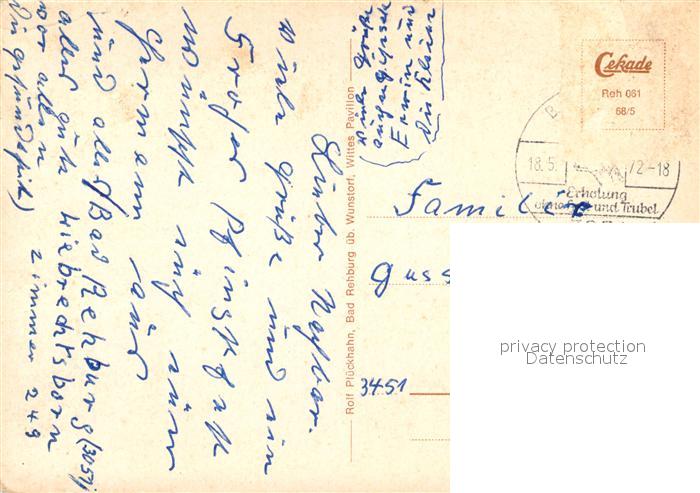 Lieber Nachbar.
Viele Grüße und ein
Frohes Pfingstfest
wünscht auch
Hermann aus
und alles Bad Rehburg (3051)
alles gute Liebrechtsborn
vor allen Zimmer 249
die gesundheit)
(Viele Grüße
auch an Gisela
Erwin und
die Kleine
Rolf Plückhahn, Bad Rehburg üb. Wunstorf, Wittes Pavillon
Cekade
Reh 061
68/5
18.5. 72-18
Erholung
ohne Hast und Trubel
Familie
Guss
3451
privacy protection
Datenschutz